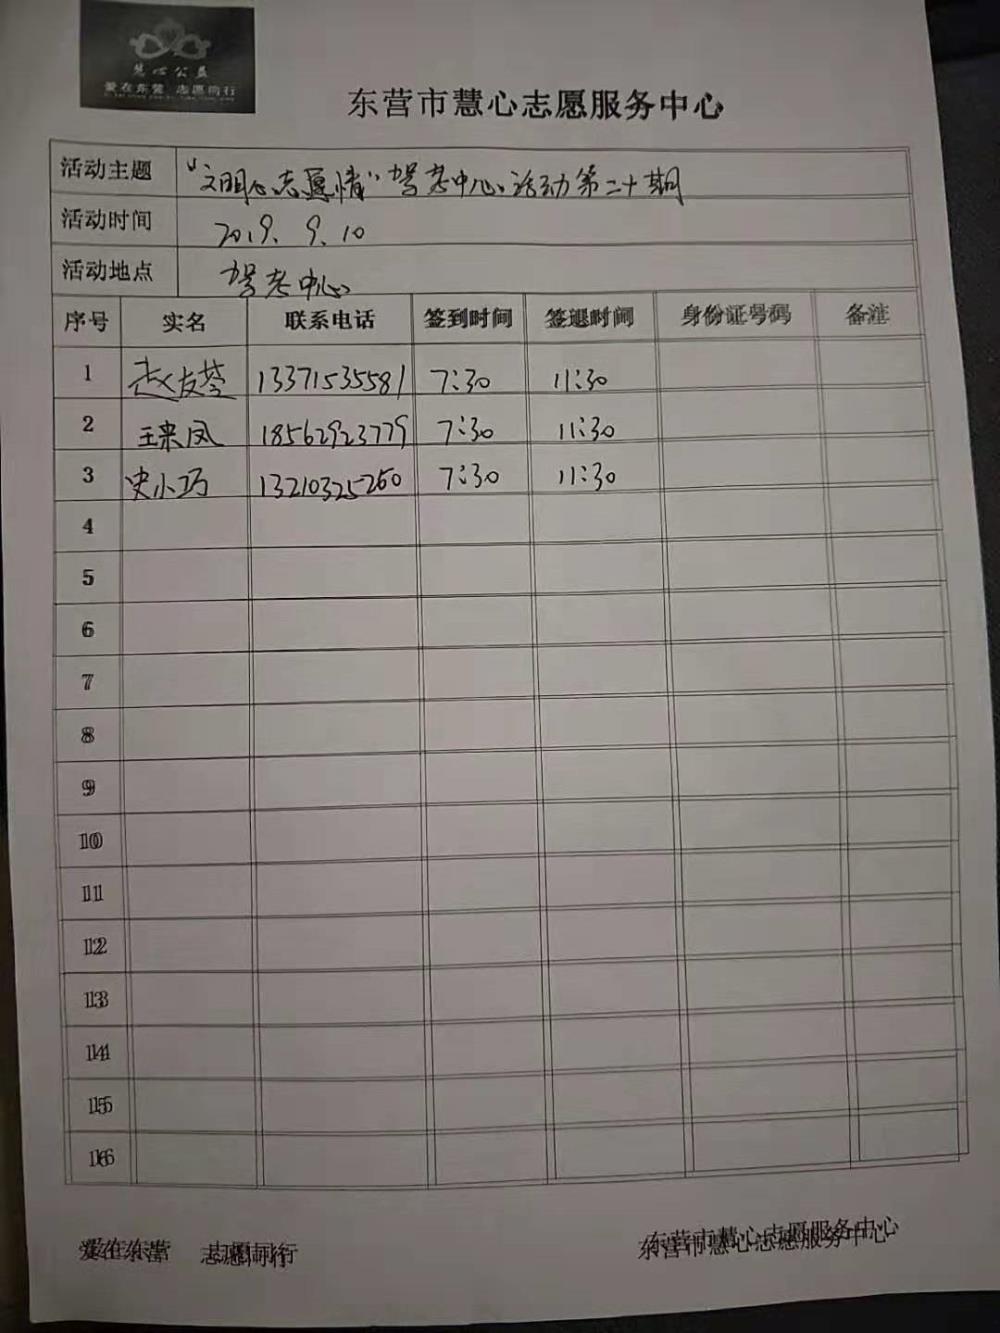 慧心公益
爱在东营 志愿同行
东营市慧心志愿服务中心
活动主题 “文明心志愿情”驾考中心活动第二十期
活动时间 2019.9.10
活动地点 驾考中心
序号 实名 联系电话 签到时间 签退时间 身份证号码 备注
1 赵友苓 13371535581 7:30 11:30
2 王来凤 18562923779 7:30 11:30
3 史小巧 13210325260 7:30 11:30
4
5
6
7
8
9
10
11
12
13
14
15
16
爱在东营 志愿同行 东营市慧心志愿服务中心